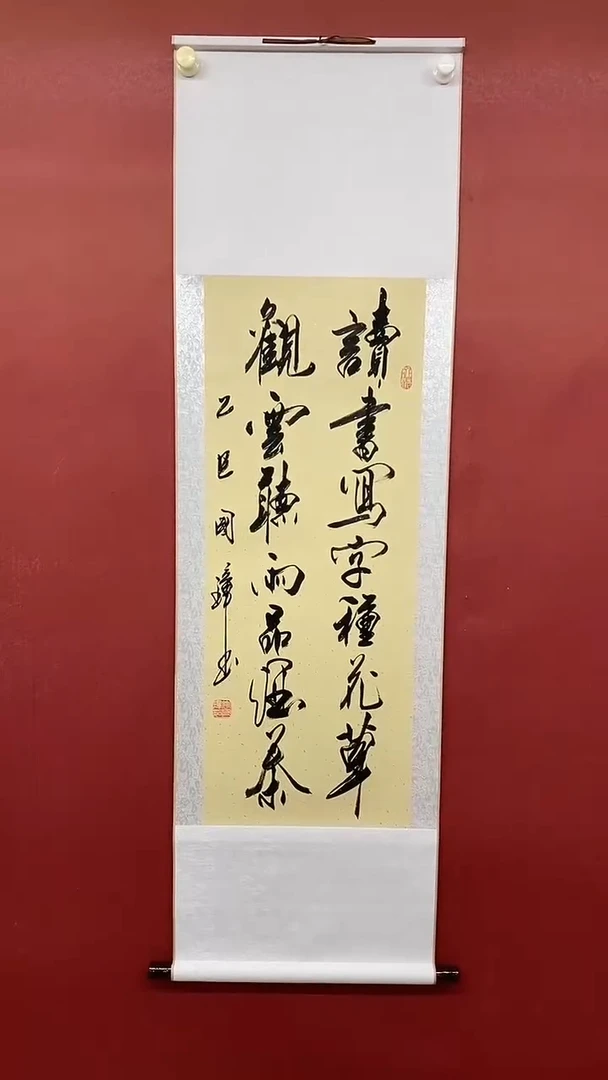 讀書寫字種花草
觀雲聽雨品濃茶
乙巳國璋書